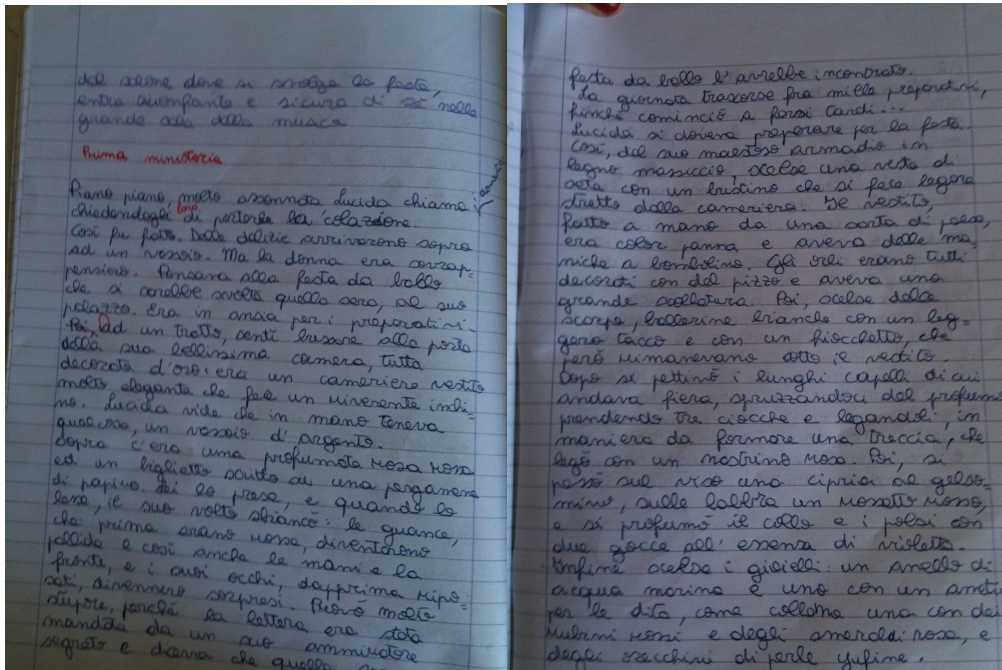 dal salone dove si svolge la festa,
entra trionfante e sicura di sé nella
grande sala della musica
Prima ministoria
Piano piano, molto assonnata Lucida chiamò
i domestici
chiedendogli loro di portarle la colazione.
Così fu fatto. Delle delizie arrivarono sopra
ad un vassoio. Ma la donna era sovrap-
pensiero. Pensava alla festa da ballo
che si sarebbe svolta quella sera, al suo
palazzo. Era in ansia per i preparativi.
Poi, ad un tratto, sentì bussare alla porta
della sua bellissima camera, tutta
decorata d'oro: era un cameriere vestito
molto elegante che fece un riverente inchi-
no. Lucida vide che in mano teneva
qualcosa, un vassoio d'argento.
Sopra c'era una profumata rosa rossa
ed un biglietto scritto su una pergamena
di papiro. Lei lo prese, e quando lo
lesse, il suo volto sbiancò: le guance,
che prima erano rosse, diventarono
pallide e così anche le mani e la
fronte, e i suoi occhi, dapprima ripo-
sati, divennero sorpresi. Provò molto
stupore, perché la lettera era stata
mandata da un suo ammiratore
segreto e diceva che quella
festa da ballo l'avrebbe incontrato.
La giornata trascorse fra mille preparativi,
finché cominciò a farsi tardi...
Lucida si doveva preparare per la festa.
Così, dal suo maestoso armadio in
legno massiccio, scelse una veste di
seta con un bustino che si fece legare
stretto dalla cameriera. Il vestito,
fatto a mano da una sarta di paese,
era color panna e aveva delle ma-
niche a bombolino. Gli orli erano tutti
decorati con del pizzo e aveva una
grande scollatura. Poi, scelse delle
scarpe, ballerine bianche con un leg-
gero tacco e con un fiocchetto, che
però rimanevano sotto il vestito.
Dopo si pettinò i lunghi capelli di cui
andava fiera, spruzzandoci del profumo
prendendo tre ciocche e legandoli, in
maniera da formare una treccia, che
legò con un nastrino rosa. Poi, si
passò sul viso una cipria al gelso-
mino, sulle labbra un rossetto rosso,
e si profumò il collo e i polsi con
due gocce all'essenza di violetta.
Infine scelse i gioielli: un anello di
acqua marina e uno con un ameti
per le dita, come collana una con dei
rubini rossi e degli smeraldi rosa, e
degli orecchini di perle